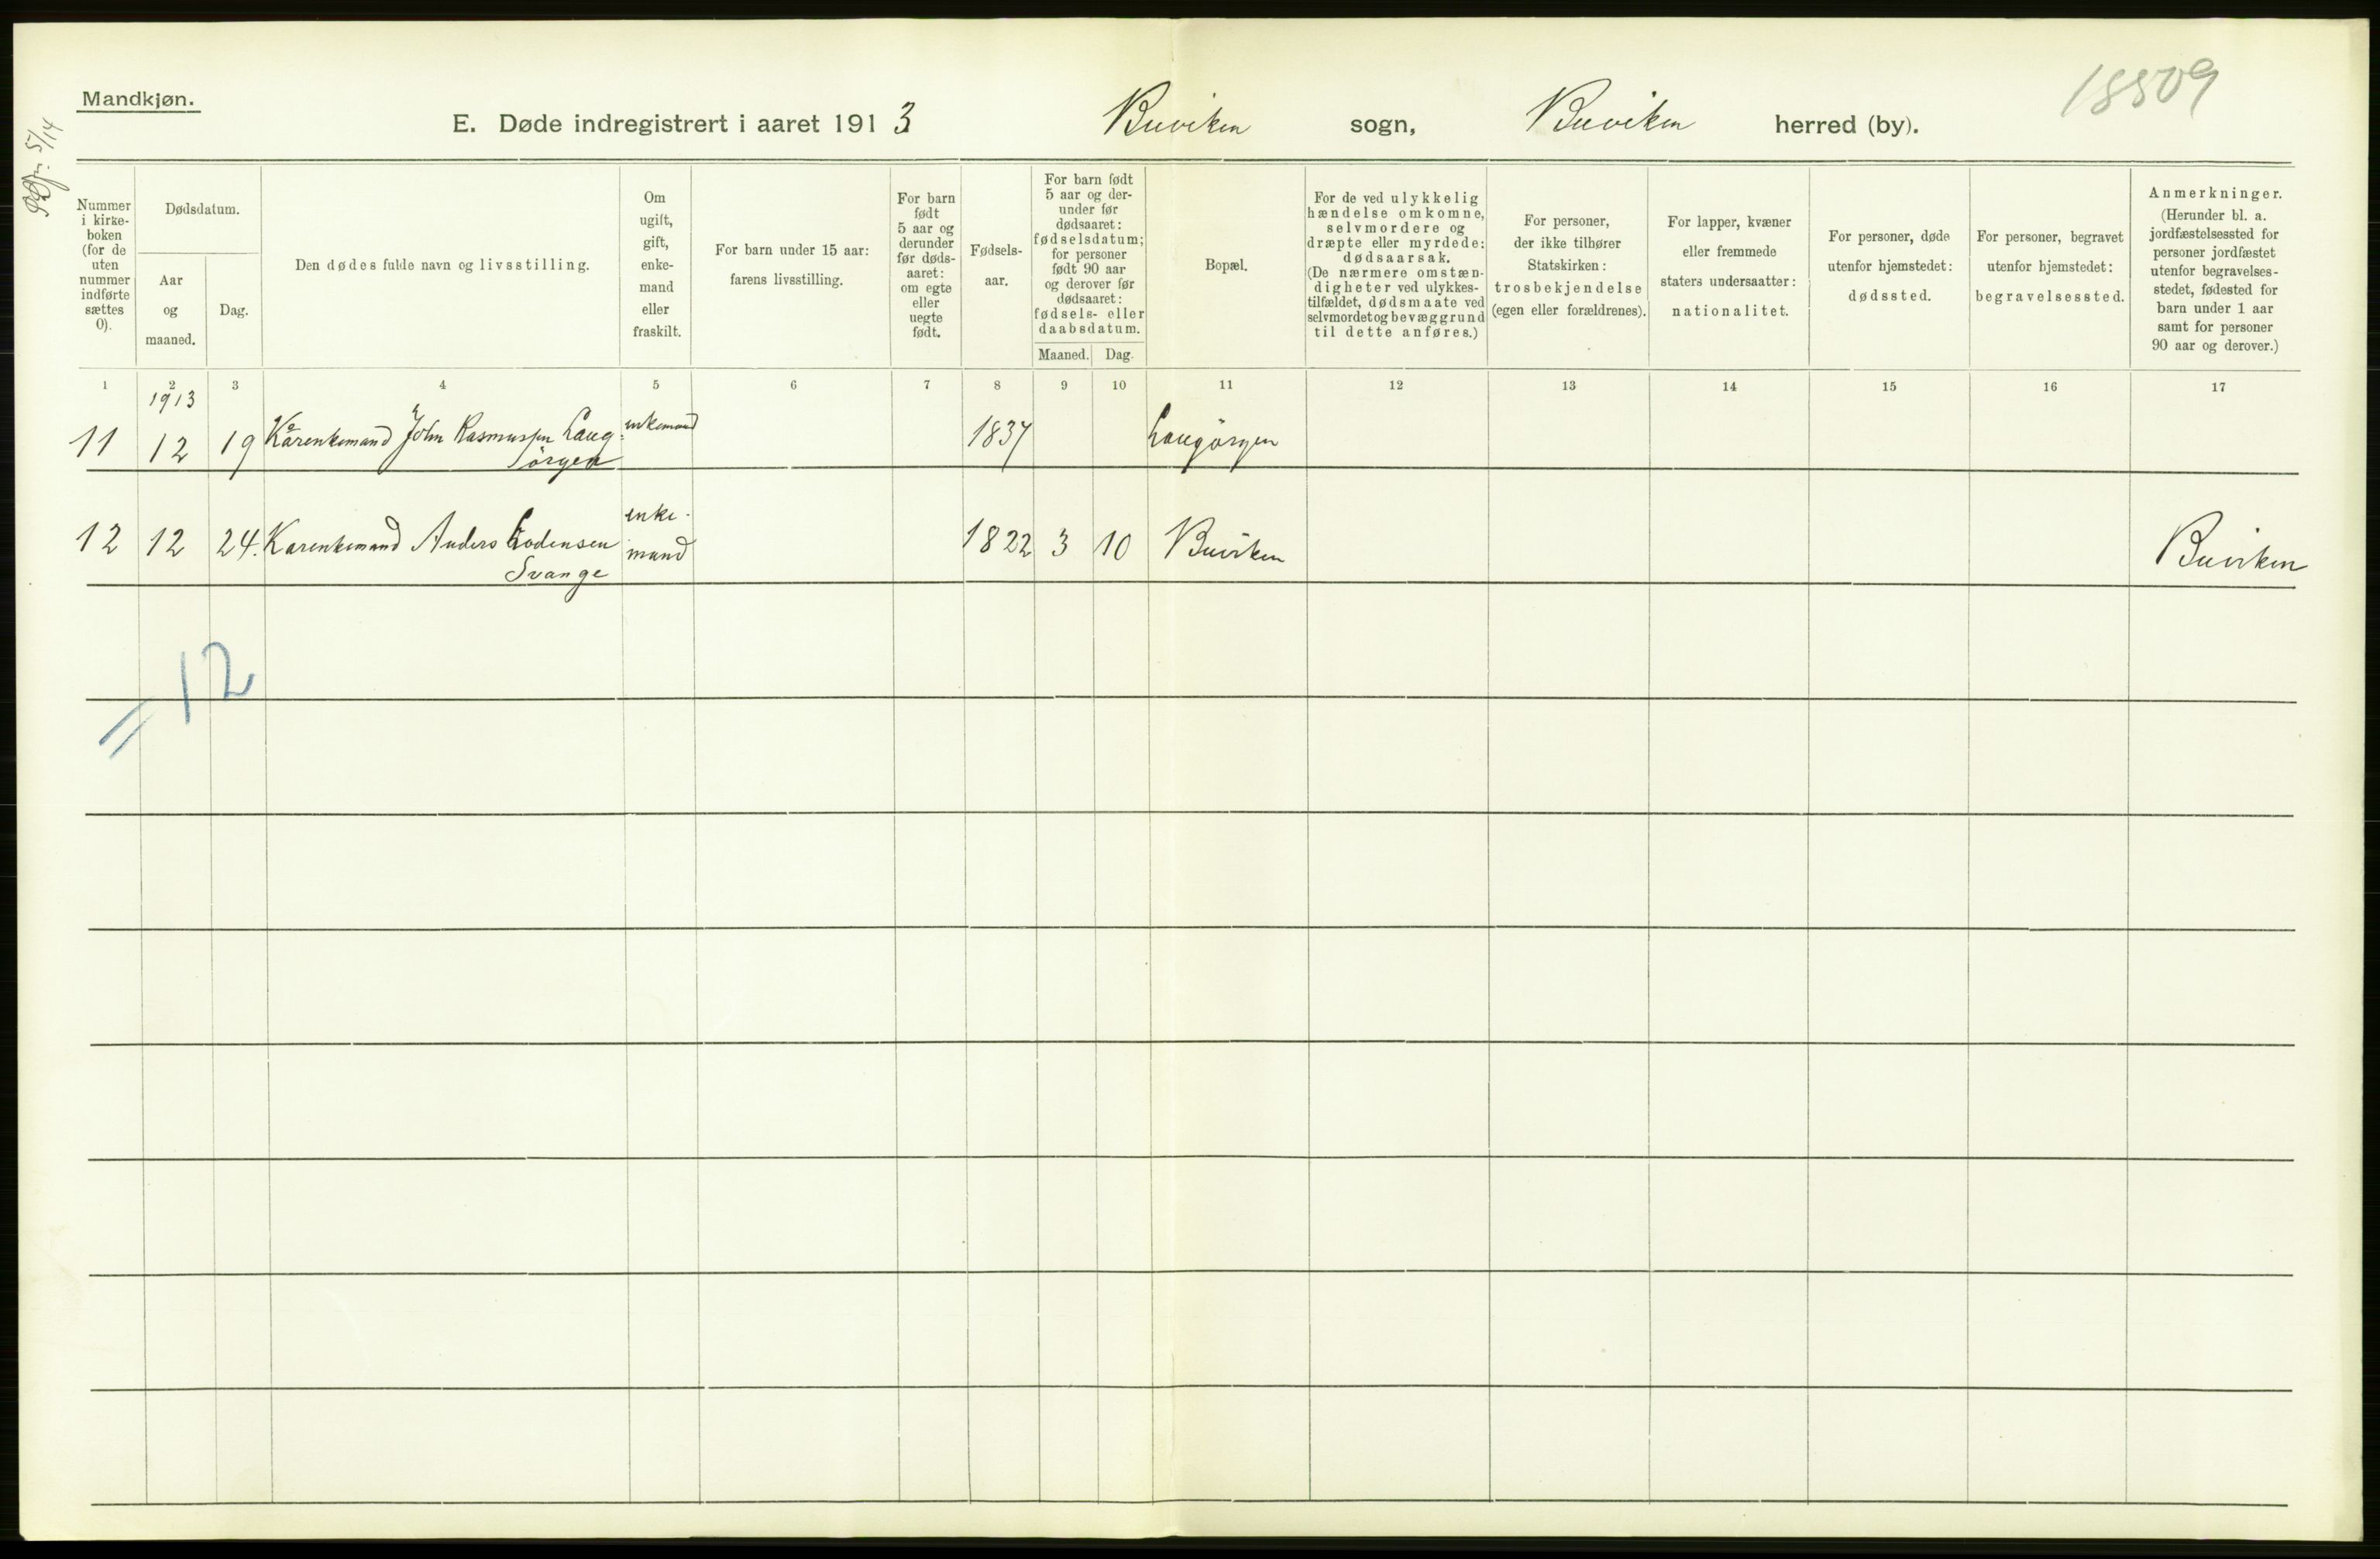 Mandkjøn.
18809
5/14
E. Døde indregistrert i aaret 1913 Buviken sogn, Buviken herred (by).
Nummer i kirke- boken (for de uten nummer indførte sættes 0).
Dødsdatum.
Aar og maaned.
Dag.
Den dødes fulde navn og livsstilling.
Om ugift, gift, enke- mand eller fraskilt.
For barn under 15 aar: farens livsstilling.
For barn født 5 aar og derunder før døds- aaret: om egte eller uegte født.
Fødsels- aar.
For barn født 5 aar og der- under før dødsaaret: fødselsdatum; for personer født 90 aar og derover før dødsaaret: fødsels- eller daabsdatum.
Maaned. Dag.
Bopæl.
For de ved ulykkelig hændelse omkomne, selvmordere og dræpte eller myrdede: dødsaarsak. (De nærmere omstæn- digheter ved ulykkes- tilfældet, dødsmaate ved selvmordet og bevæggrund til dette anføres.)
For personer, der ikke tilhører Statskirken: trosbekjendelse (egen eller forældrenes).
For lapper, kvæner eller fremmede staters undersaatter: nationalitet.
For personer, døde utenfor hjemstedet: dødssted.
For personer, begravet utenfor hjemstedet: begravelsessted.
Anmerkninger. (Herunder bl. a. jordfæstelsessted for personer jordfæstet utenfor begravelses- stedet, fødested for barn under 1 aar samt for personer 90 aar og derover.)
1 2 3 4 5 6 7 8 9 10 11 12 13 14 15 16 17
1913
11 12 19 Kårenkemand John Rasmussen Laug- enkemand 1837 Laugörgen
örgen
12 12 24. Karenkemand Anders Lodensen enke- 1822 3 10 Buviken Buviken
Svange mand
= 12